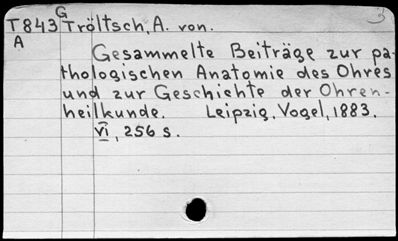 G
T843 Tröltsch, A. von.
A
Gesammelte Beiträge zur pa-
thologischen Anatomie des Ohres
und zur Geschichte der Ohren-
heilkunde. Leipzig, Vogel, 1883.
VI, 256 s.